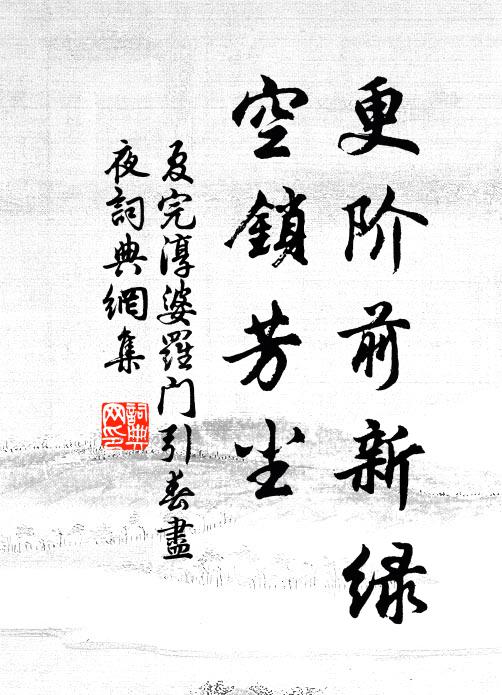 更阶前新绿
空鎖芳尘
夏完淳婆羅门引春盡
夜詞典網集
詞典
网印